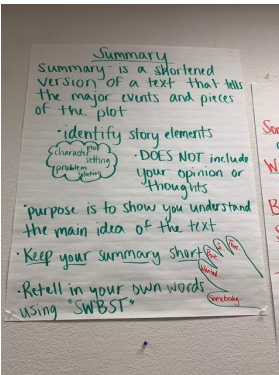 Summary
summary is a shortened
version of a text that tells
the major events and pieces
of the plot
• identify story elements
character plot
setting
problem
solution
• DOES NOT include
your opinion or
thoughts
• purpose is to show you understand
the main idea of the text
• Keep your summary short
• Retell in your own words
using "SWBST"
Somebody
Wanted...
But
Then
So
W
B
S